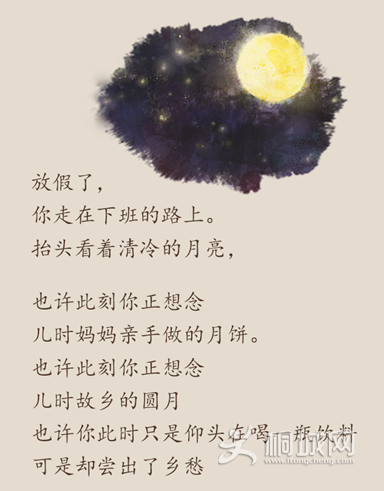 放假了，
你走在下班的路上。
抬头看着清冷的月亮，
也许此刻你正想念
儿时妈妈亲手做的月饼。
也许此刻你正想念
儿时故乡的圆月
也许你此时只是仰头在喝一瓶饮料
可是却尝出了乡愁
桐城网
www.tongcheng.com